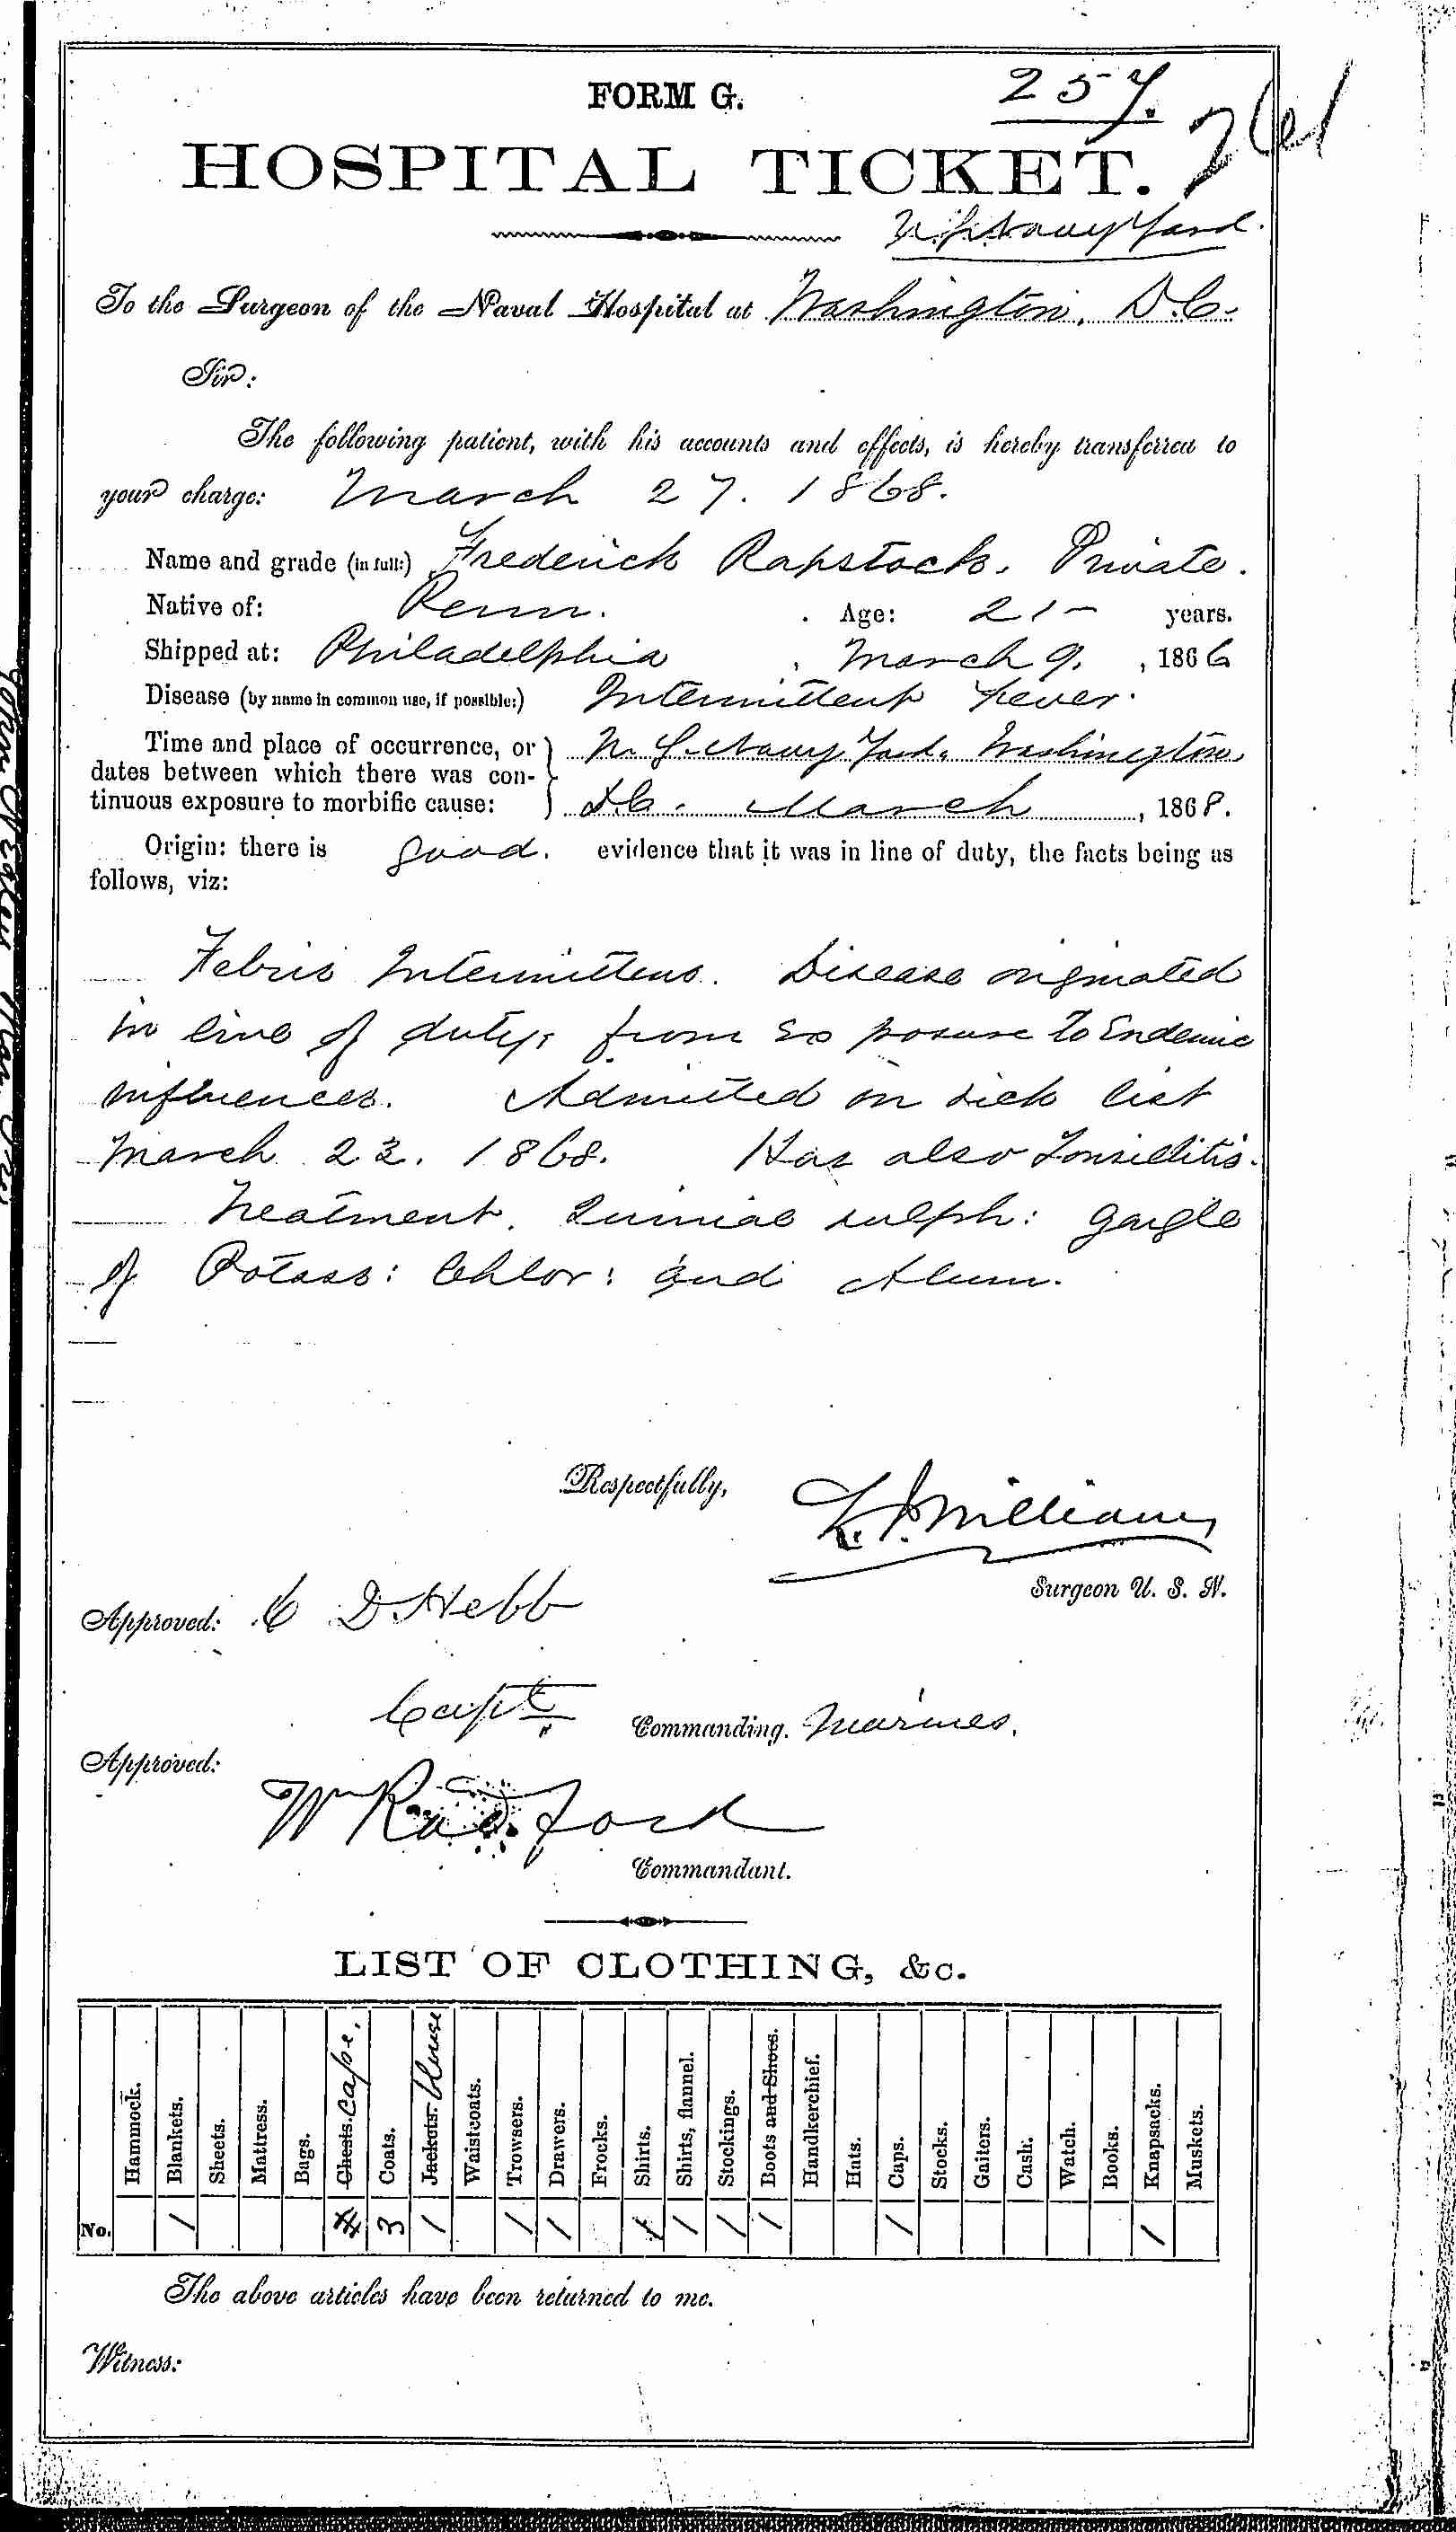 FORM G.
257.
261
HOSPITAL TICKET.
U.S. Navy Yard.
To the Surgeon of the Naval Hospital at Washington, D.C.
Sir:
The following patient, with his accounts and effects, is hereby transferred to
your charge: March 27. 1868.
Name and grade (in full:) Frederick Rapstock. Private.
Native of: Penn. Age: 21 — years.
Shipped at: Philadelphia, March 9., 1866
Disease (by name in common use, if possible:) Intermittent Fever.
Time and place of occurrence, or } U.S. Navy Yard. Washington,
dates between which there was con-
tinuous exposure to morbific cause: } D.C. March, 1868.
Origin: there is good. evidence that it was in line of duty, the facts being as
follows, viz:
Febris Intermittens. Disease originated
in line of duty, from Ex posure to Endemic
influences. Admitted on sick list
March 23. 1868. Has also Tonsillitis.
Treatment. Quiniae sulph: gargle
of Potass: Chlor: and Alum.
Respectfully,
Williams
Surgeon U. S. N.
Approved: C D Hebb
Capt. Commanding. Marines.
Approved:
Wm Radford
Commandant.
LIST OF CLOTHING, &c.
Hammock. Blankets. Sheets. Mattress. Bags. Chests. Cape. Coats. Jackets. Blouse Waistcoats. Trowsers. Drawers. Frocks. Shirts. Shirts, flannel. Stockings. Boots and Shoes. Handkerchief. Hats. Caps. Stocks. Gaiters. Cash. Watch. Books. Knapsacks. Muskets.
No. 1 3 1 1 1 1 1 1 1 1 1
The above articles have been returned to me.
Witness: